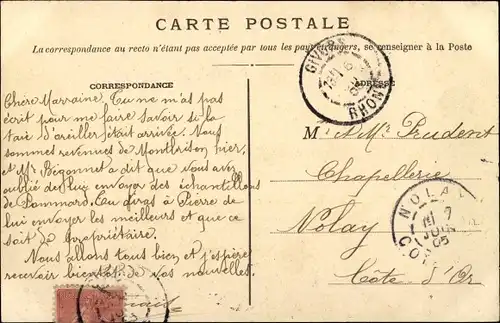 CARTE POSTALE
La correspondance au recto n'étant pas acceptée par tous les pays étrangers, se renseigner à la Poste
CORRESPONDANCE
ADRESSE
Chère Marraine. Tu ne m'as pas
écrit pour me faire savoir si la
taie d'oreiller était arrivée. Nous
sommes revenues de Montbrison hier,
et Mr Bigonnet a dit que vous avez
oublié de lui envoyer des échantillons
de Pommard. Tu diras à Pierre de
lui envoyer les meilleurs et que ce
soit de propriétaire.
Nous allons tous bien et j'espère
recevoir bientôt de vos nouvelles.
M. & Me Prudent
Chapellerie
Nolay
Côte d'Or
GIVORS
RHONE
NOLAY
7
JUIL
05